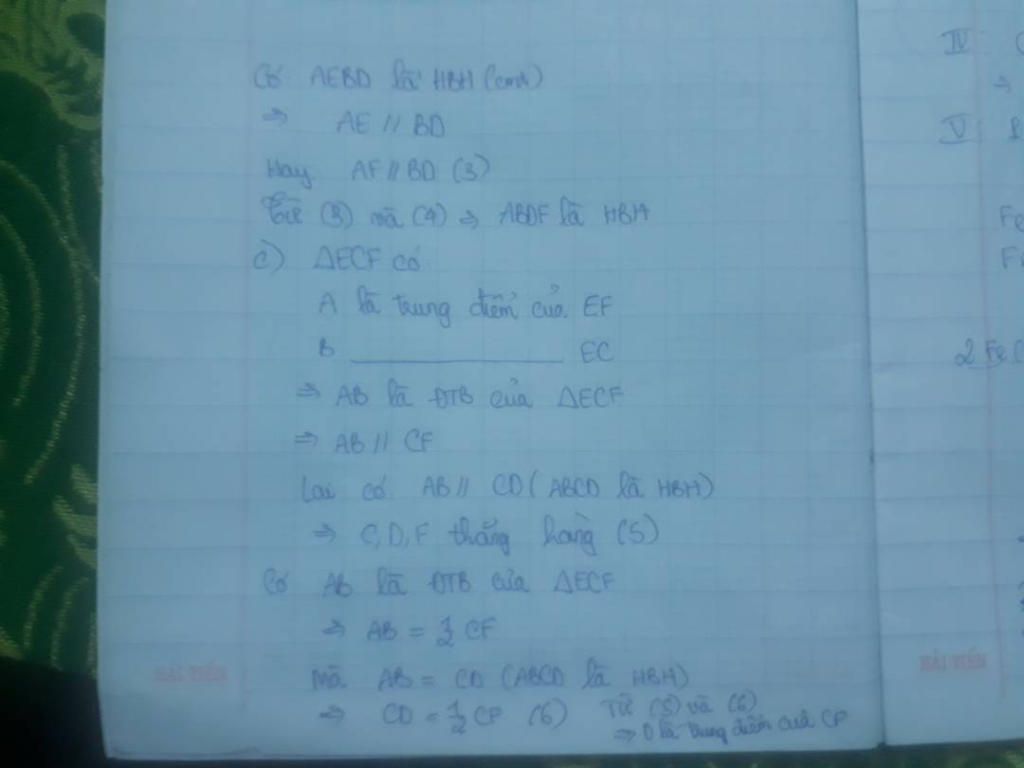 Có AEBD là HBH (cmt)
⇒ AE // BD
Hay AF // BD (3)
Từ (3) và (4) ⇒ ABDF là HBH
c) ΔECF có
A là trung điểm của EF
B ———————— EC
⇒ AB là ĐTB của ΔECF
⇒ AB // CF
Lại có AB // CD (ABCD là HBH)
⇒ C, D, F thẳng hàng (5)
Có AB là ĐTB của ΔECF
⇒ AB = 1/2 CF
Mà AB = CD (ABCD là HBH)
⇒ CD = 1/2 CF (6) Từ (5) và (6)
⇒ D là trung điểm của CF
HẢI TIẾN
IV
V
Fe
2 Fe (
HẢI TIẾN